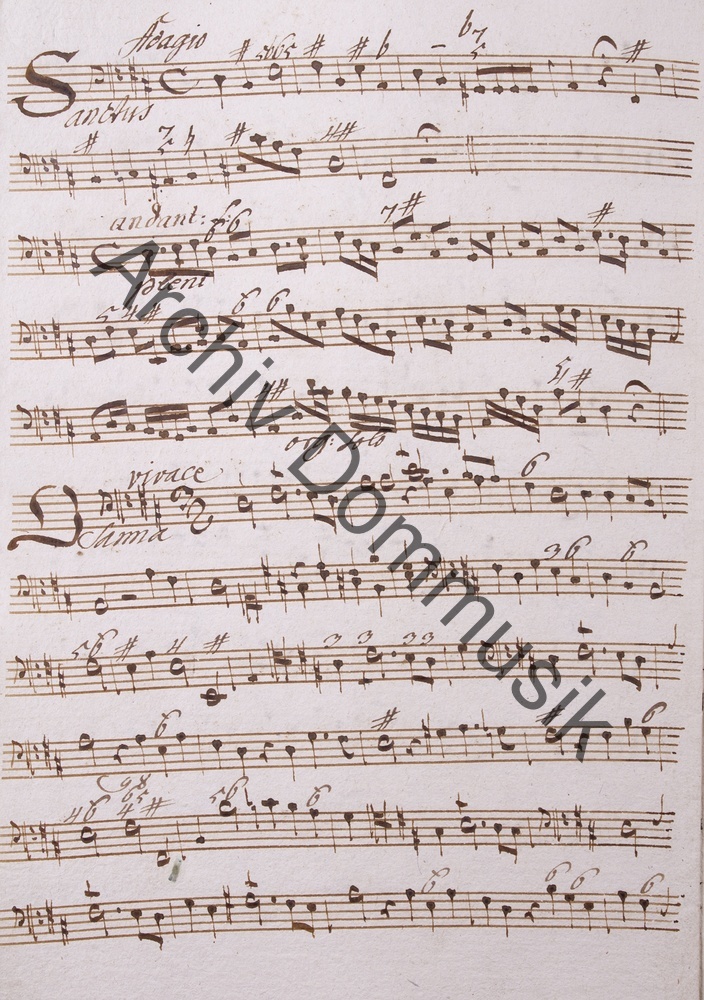 Adagio
Sanctus
andant: 
pleni
org: solo
vivace
Osanna
Archiv Dommusik